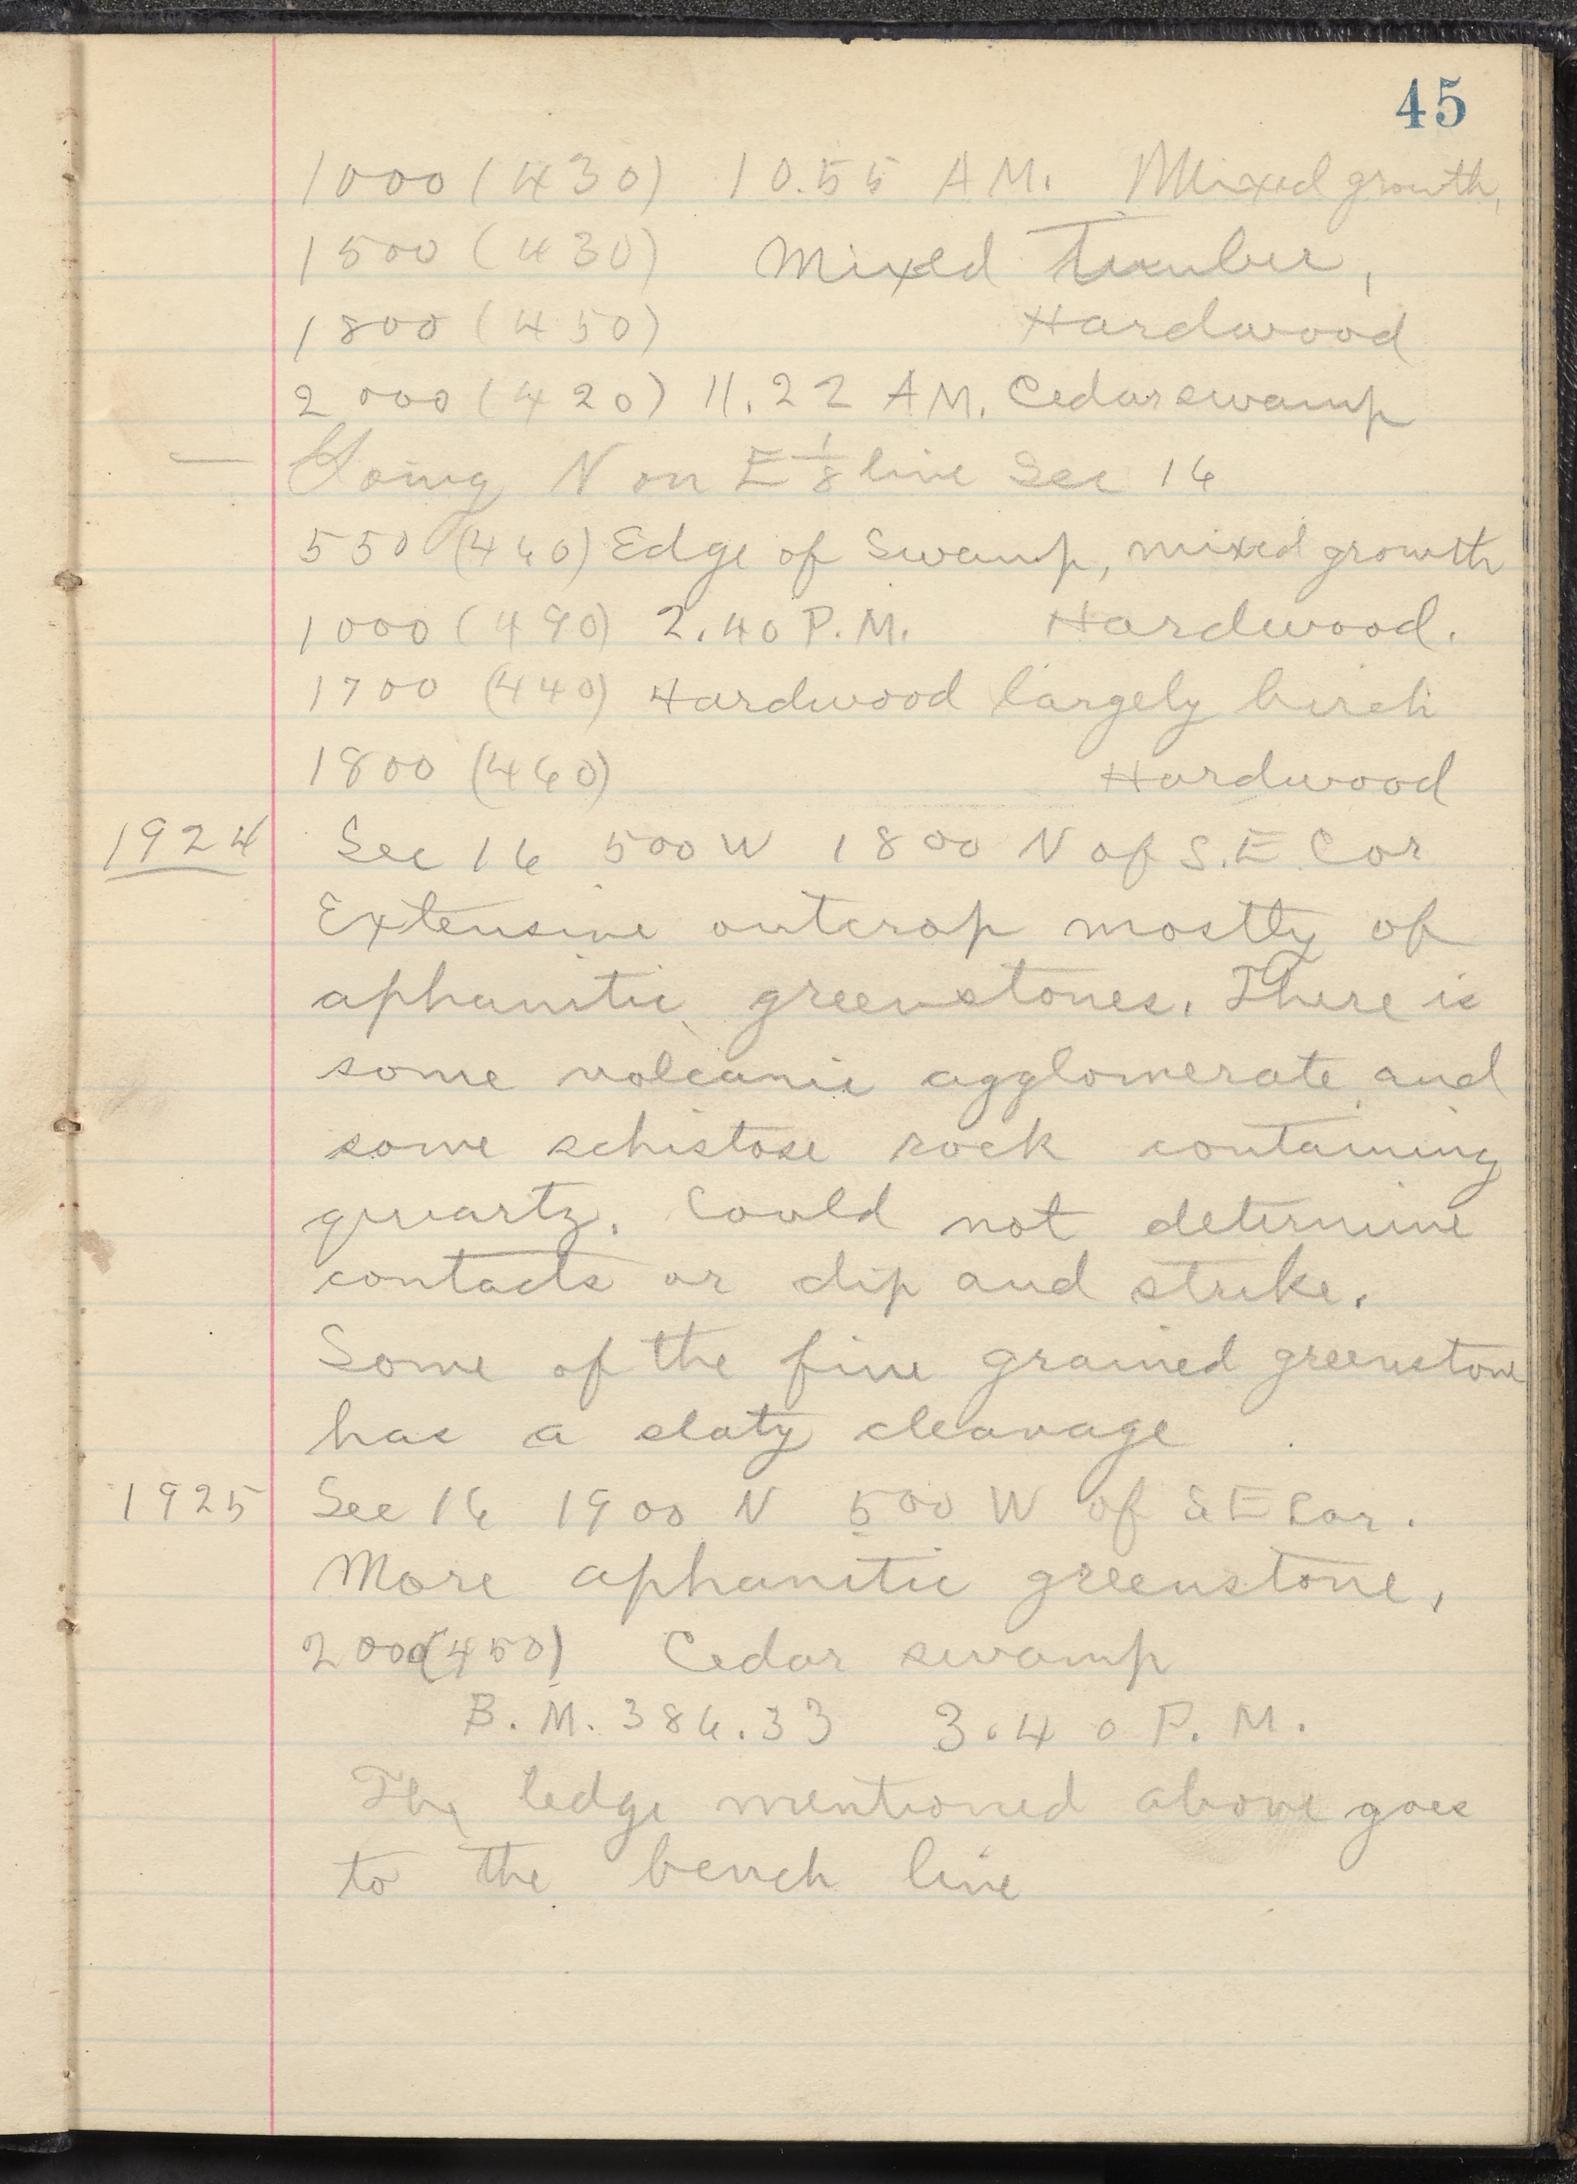 45
1000 (430) 10.55 A.M. Mixed growth,
1500 (430) Mixed Timber,
1800 (450) Hardwood
2000 (420) 11.22 A.M. Cedar swamp
— Going N on E 1/8 line Sec 16
550 (440) Edge of Swamp, mixed growth
1000 (490) 2.40 P.M. Hardwood.
1700 (440) Hardwood largely birch
1800 (460) Hardwood
1924 Sec 16 500 W 1800 N of S.E Cor
Extensive outcrop mostly of
aphanitic greenstones. There is
some volcanic agglomerate and
some schistose rock containing
quartz. Could not determine
contacts or dip and strike.
Some of the fine grained greenstone
has a slaty cleavage
1925 Sec 16 1900 N 500 W of S E Cor.
More aphanitic greenstone,
2000 (450) Cedar swamp
B. M. 386.33 3.40 P. M.
The ledge mentioned above goes
to the bench line